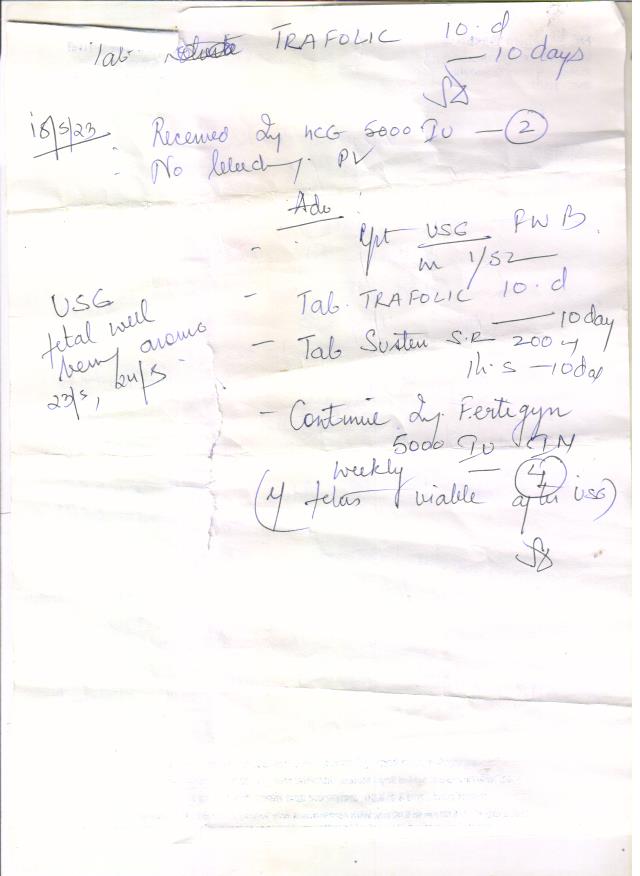 Tab TRAFOLIC 10.d
— 10 days
18/5/23 - Received Inj hCG 5000 IU — 2
- No bleeding PV
Adv
- Rpt USG FWB
in 1/52
- Tab. TRAFOLIC 10.d
— 10 day
- Tab Susten S.R 200
1h.s — 10 day
- Continue Inj. Fertigyn
5000 IU IM
weekly — 4
(If fetus viable after USG)
USG
fetal well
being
23/5, 24/5